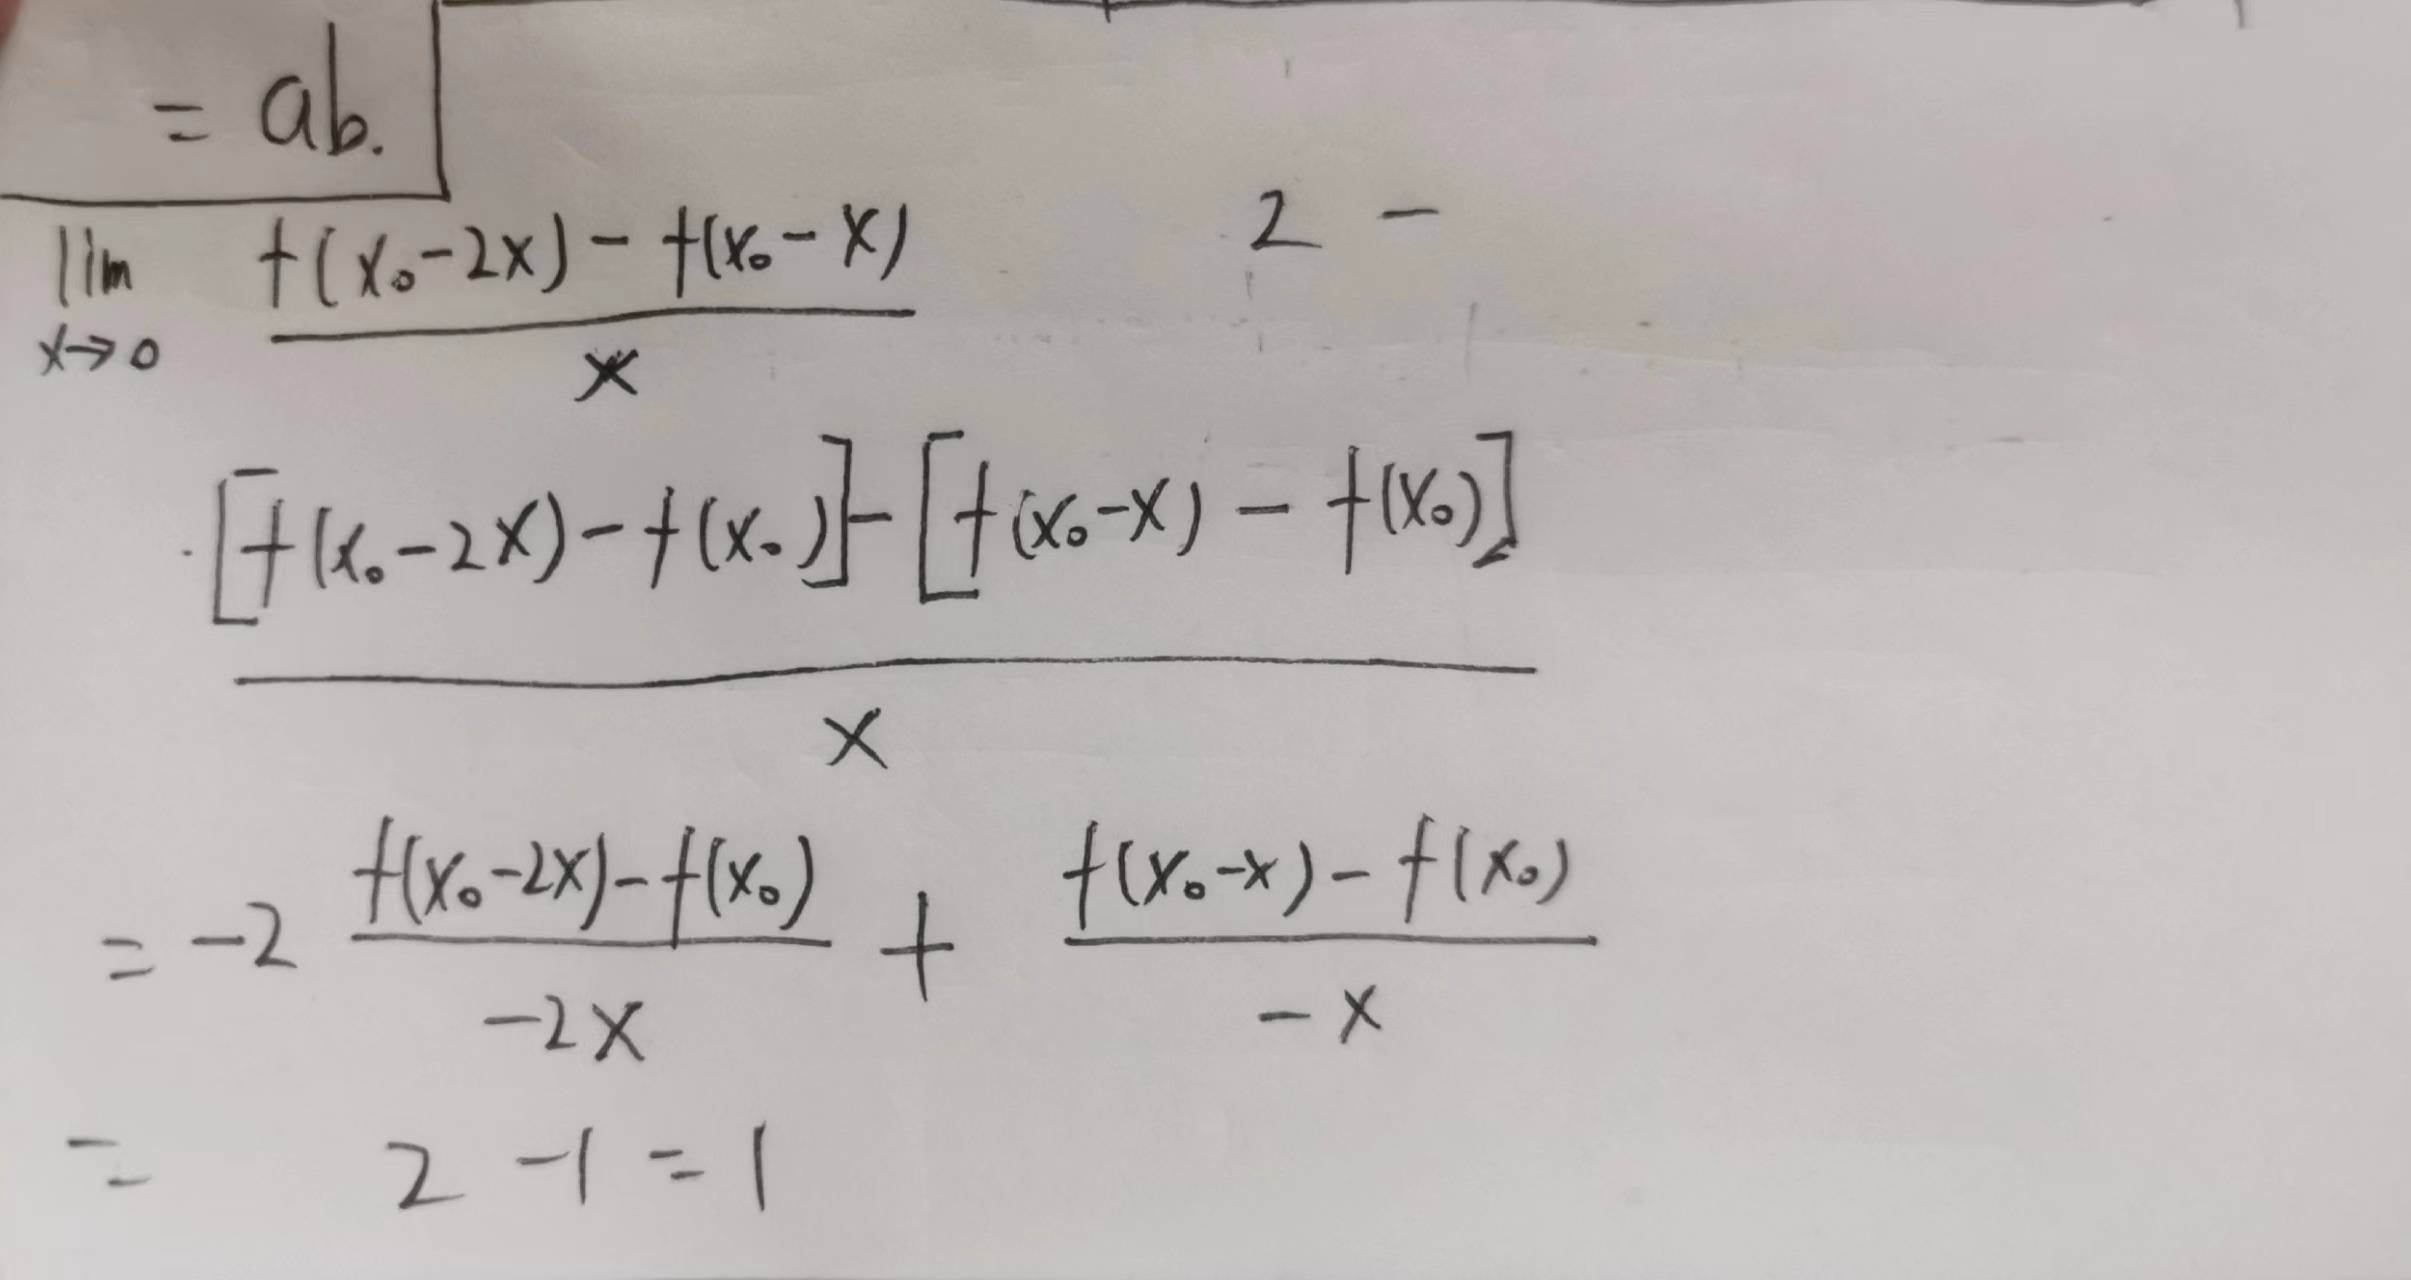 = ab.
lim x→0 f(x₀-2x) - f(x₀-x) / x 2 -
[f(x₀-2x) - f(x₀)] - [f(x₀-x) - f(x₀)] / x
= -2 f(x₀-2x) - f(x₀) / -2x + f(x₀-x) - f(x₀) / -x
= 2 - 1 = 1